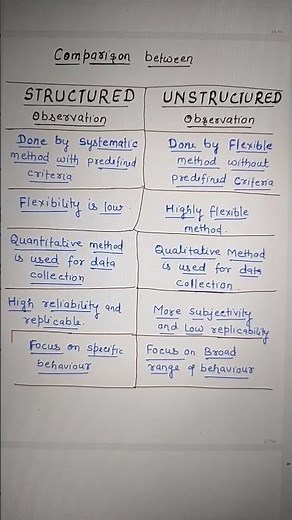 Comparison between
STRUCTURED
Observation
Done by Systematic
method with predefined
criteria
Flexibility is low.
Quantitative method
is used for data
collection
High reliability and
replicable.
Focus on specific
behaviour
UNSTRUCTURED
Observation
Done by Flexible
method without
predefined criteria
Highly flexible
method.
Qualitative Method
is used for data
collection.
More subjectivity
and Low replicability
Focus on Broad
range of behaviour